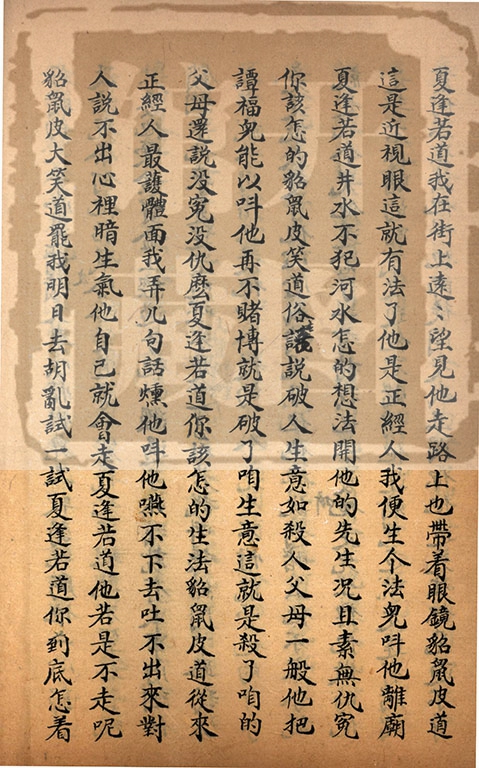 夏逢若道我在街上遠〻望見他走路上也帶着眼鏡貂鼠皮道
這是近視眼這就有法了他是正經人我便生个法兒呌他離廟
夏逢若道井水不犯河水怎的想法開他的先生况且素無仇寃
你該怎的貂鼠皮笑道俗語說破人生意如殺人父母一般他把
譚福兒能以呌他再不賭博就是破了咱生意這就是殺了咱的
父母還說没寃没仇麽夏逢若道你該怎的生法貂鼠皮道從來
正經人最護體面我弄几句話燻他呌他嚥不下去吐不出來對
人說不出心裡暗生氣他自己就會走夏逢若道他若是不走呢
貂鼠皮大笑道罷我明日去胡亂試一試夏逢若道你到底怎着